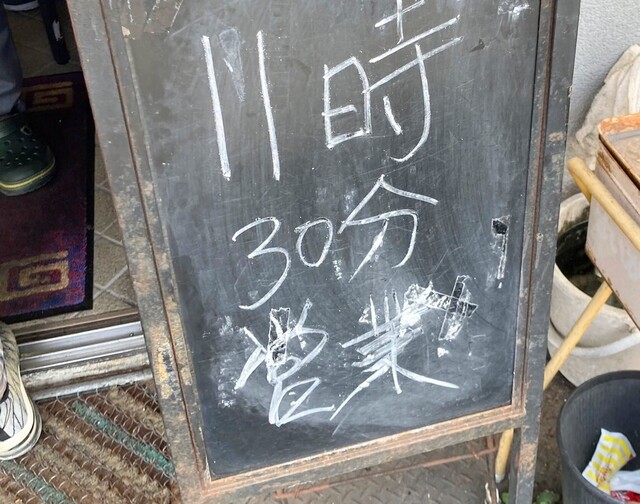 11時
30分
営業